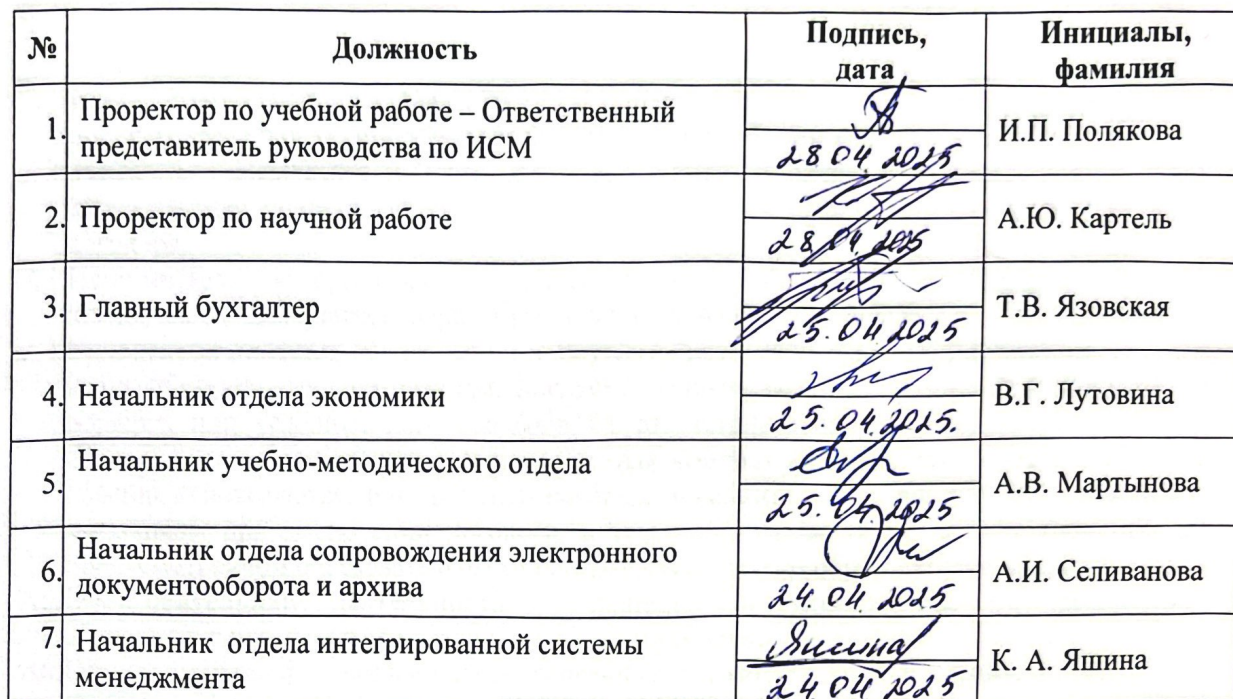 № Должность Подпись, Инициалы,
дата фамилия
1. Проректор по учебной работе – Ответственный
представитель руководства по ИСМ
28 04 2025
И.П. Полякова
2. Проректор по научной работе
28.04.2025
А.Ю. Картель
3. Главный бухгалтер
25.04.2025
Т.В. Язовская
4. Начальник отдела экономики
25.04.2025.
В.Г. Лутовина
5. Начальник учебно-методического отдела
25.04.2025
А.В. Мартынова
6. Начальник отдела сопровождения электронного
документооборота и архива
24.04.2025
А.И. Селиванова
7. Начальник отдела интегрированной системы
менеджмента
Яшина
24 04 2025
К. А. Яшина